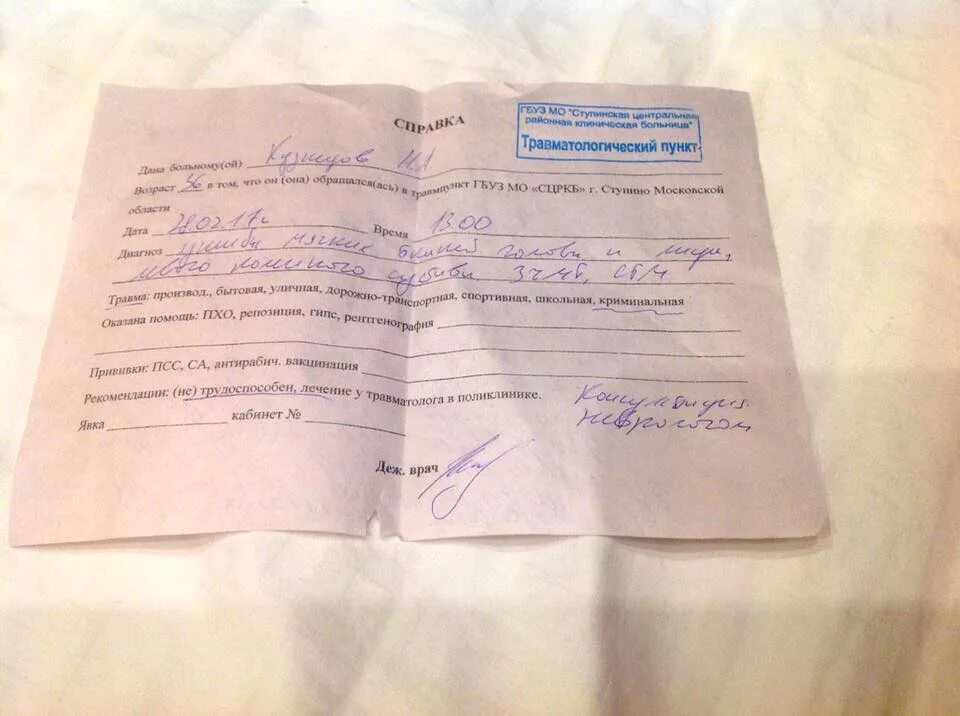 СПРАВКА
ГБУЗ МО "Ступинская центральная
районная клиническая больница"
Травматологический пункт
Дана больному(ой) Кузнецов
Возраст 56 в том, что он (она) обращался(ась) в травмпункт ГБУЗ МО «СЦРКБ» г. Ступино Московской
области
Дата 28.02.17г. Время 13.00
Диагноз ушибы мягких тканей головы и лица,
левого коленного сустава. ЗЧМТ, СГМ
Травма: производ., бытовая, уличная, дорожно-транспортная, спортивная, школьная, криминальная
Оказана помощь: ПХО, репозиция, гипс, рентгенография
Прививки: ПСС, СА, антирабич. вакцинация
Рекомендации: (не) трудоспособен, лечение у травматолога в поликлинике.
Консультация
невролога
Явка кабинет №
Деж. врач